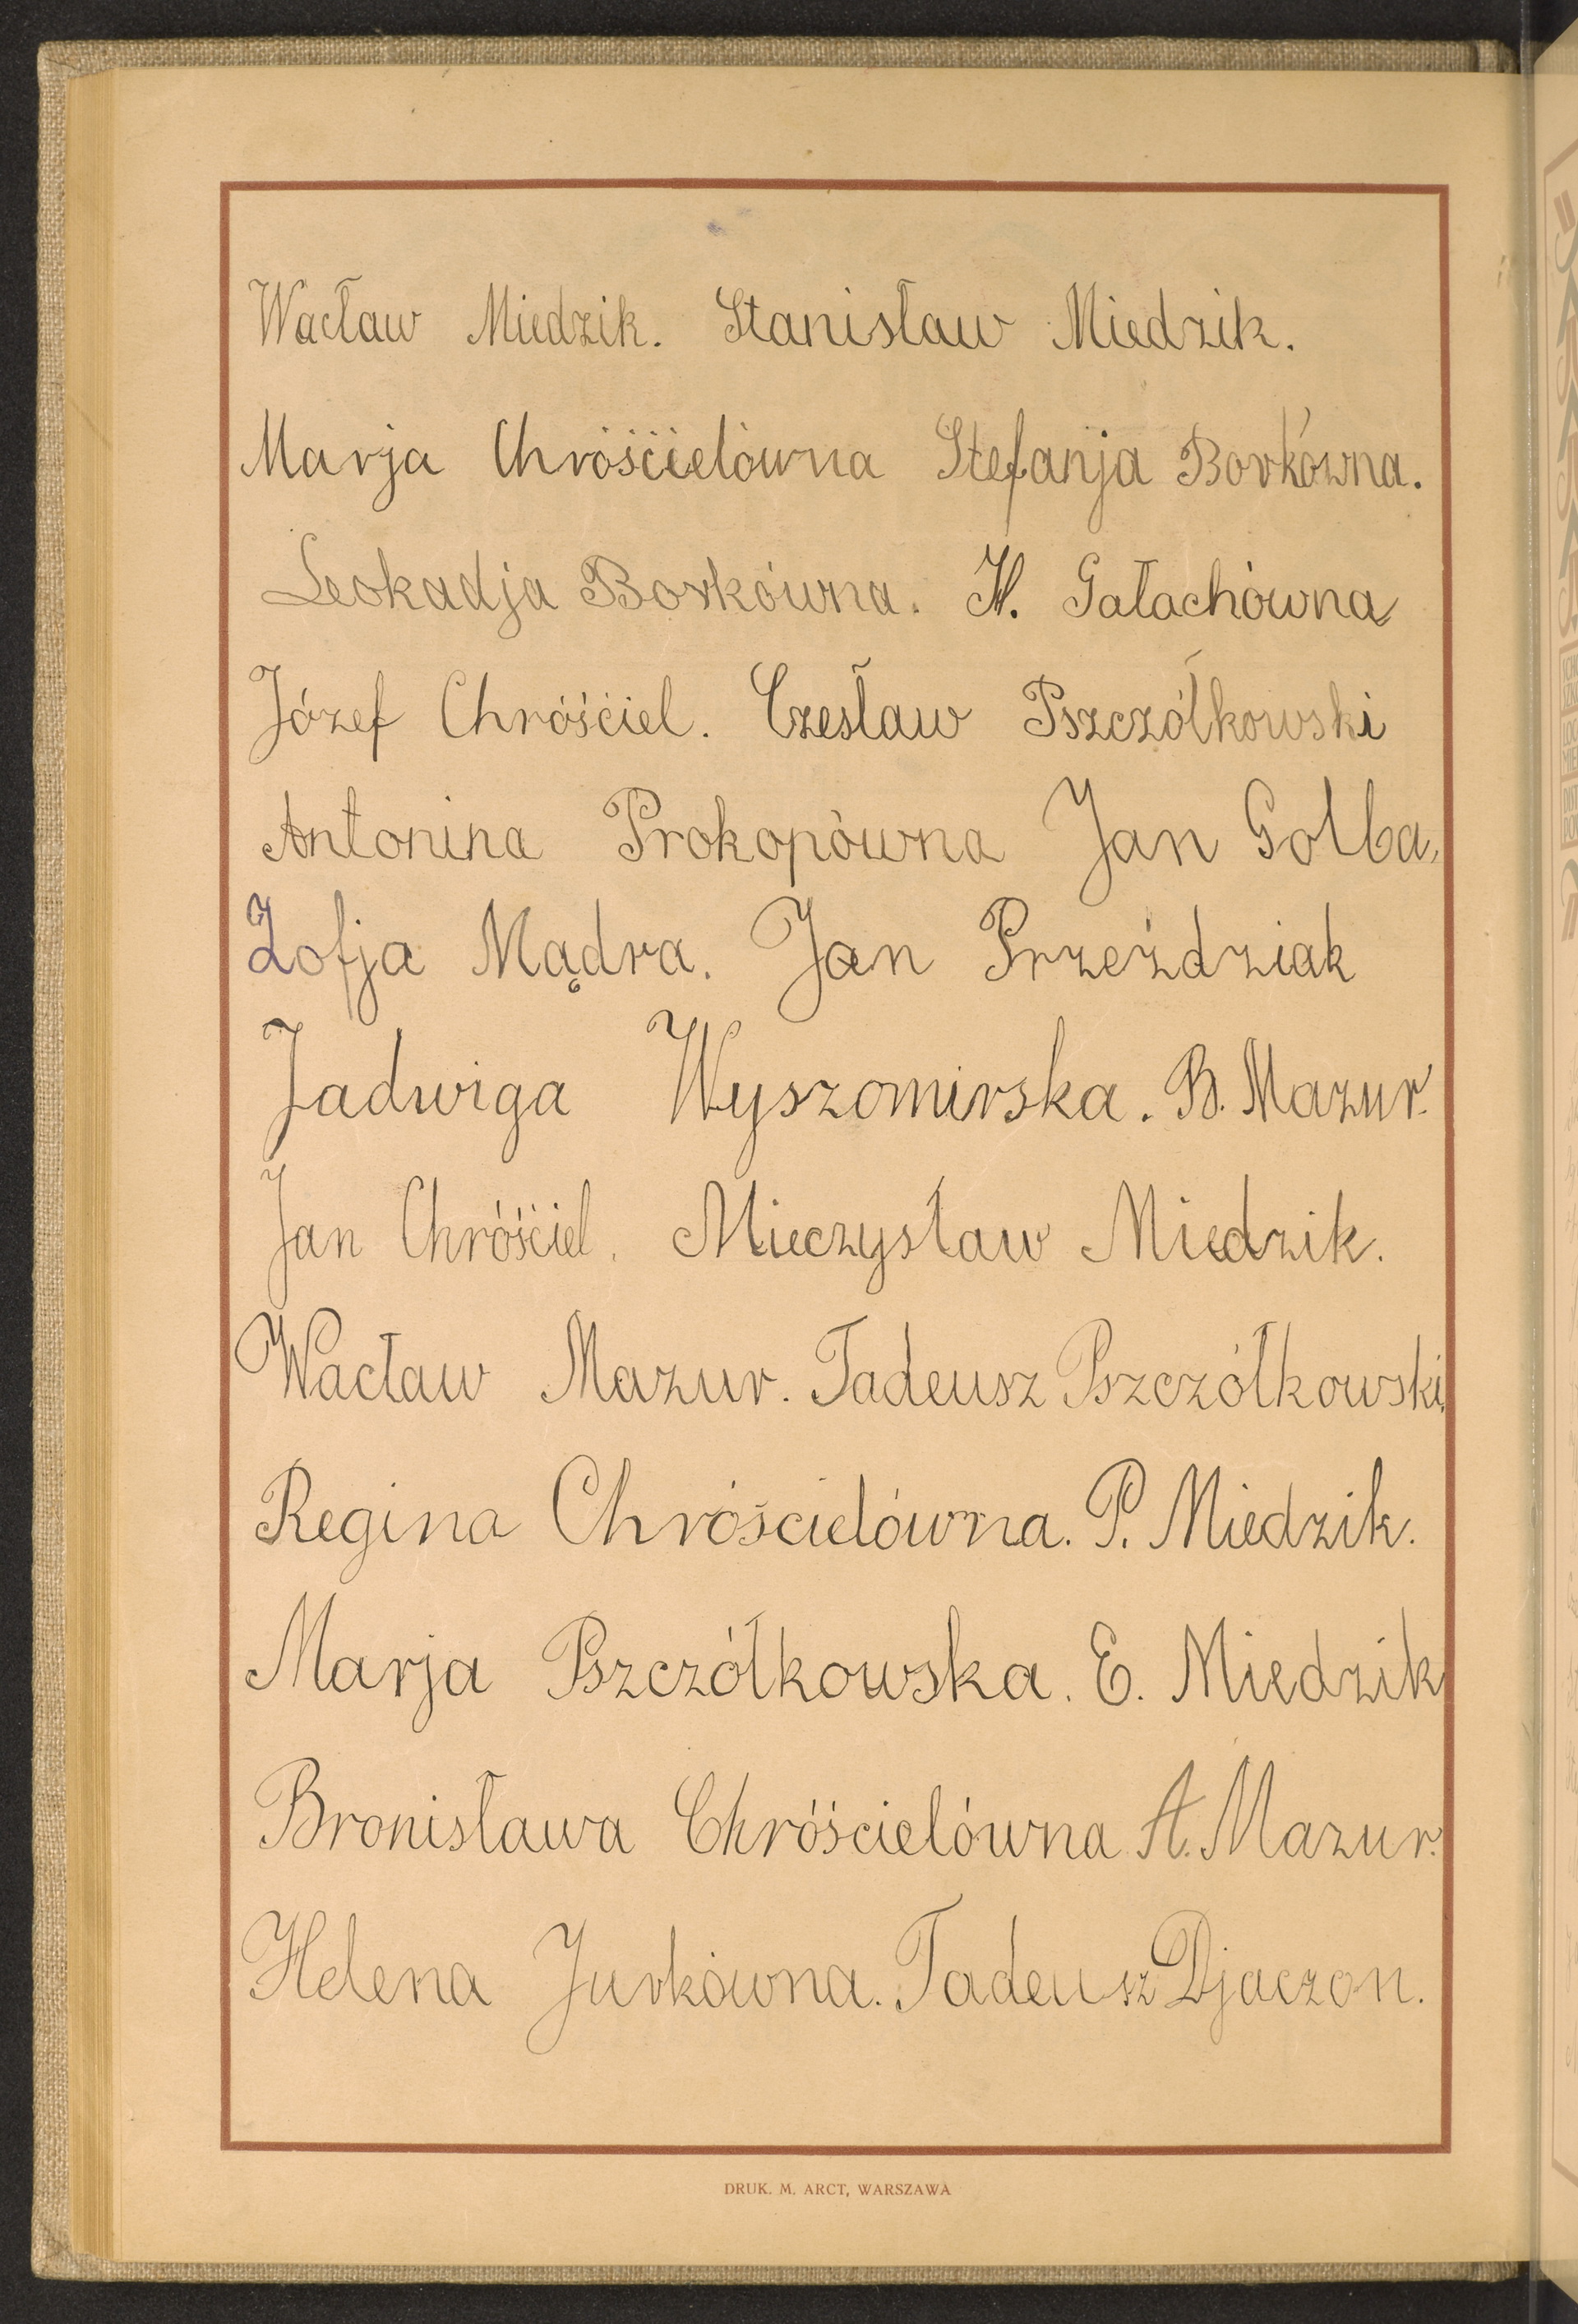 Wacław Miedzik. Stanisław Miedzik.
Marja Chróścielówna Stefanja Borkówna.
Leokadja Borkówna. H. Gałachówna
Józef Chróściel. Czesław Pszczółkowski
Antonina Prokopówna Jan Golba,
Zofja Mądra. Jan Przeździak
Jadwiga Wyszomirska. B. Mazur.
Jan Chróściel. Mieczysław Miedzik.
Wacław Mazur. Tadeusz Pszczółkowski.
Regina Chróścielówna. P. Miedzik.
Marja Pszczółkowska. E. Miedzik
Bronisława Chróścielówna A. Mazur.
Helena Jurkówna. Tadeusz Djaczon.
DRUK. M. ARCT, WARSZAWA